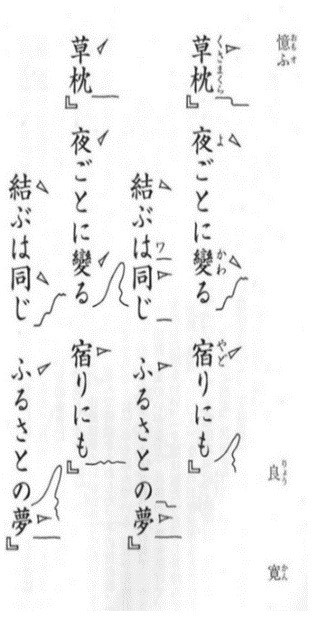 憶ふ 良寛
草枕』夜ごとに變る 宿りにも』
結ぶは同じ ふるさとの夢』
草枕』夜ごとに變る 宿りにも』
結ぶは同じ ふるさとの夢』